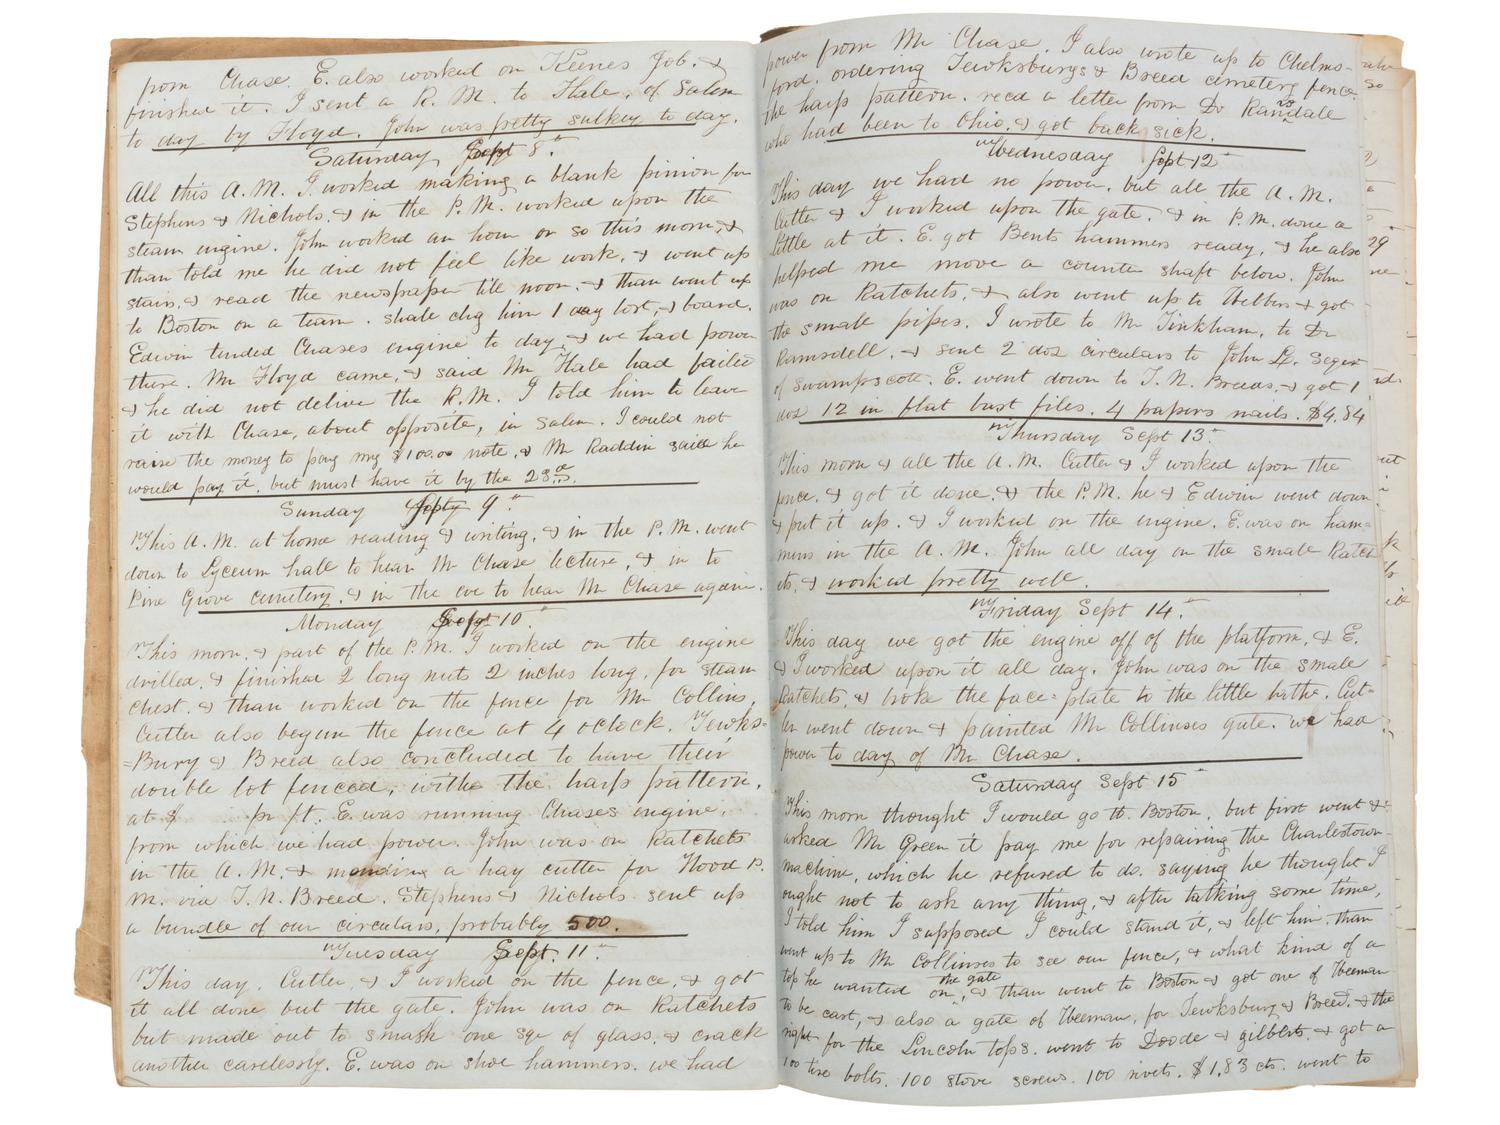 from Chase. E. also worked on Keenes Job. &
finished it. I sent a R. M. to Hale, of Salem
to day by Floyd. John was pretty sulkey to day.
Saturday Sept 8th
All this A. M. I worked making a blank pinion for
Stephens & Nichols. & in the P. M. worked upon the
steam engine. John worked an hour or so this morn, &
than told me he did not feel like work, & went up
stairs, & read the newspaper till noon, & than went up
to Boston on a team. shale chg him 1 day lost, & board.
Edwin tended Chases engine to day, & we had power
there. Mr Floyd came, & said Mr Hale had failed
& he did not deliver the R. M. I told him to leave
it with Chase, about opposite, in Salem. I could not
raise the money to pay my $100.00 note, & Mr Raddin said he
would pay it, but must have it by the 23rd.
Sunday Sept 9th
This A. M. at home reading & writing, & in the P. M. went
down to Lyceum hall to hear Mr Chase lecture, & in to
Pine Grove cemetery. & in the eve to hear Mr Chase again.
Monday Sept 10th
This morn, & part of the P. M. I worked on the engine
drilled, & finished 2 long nuts 2 inches long, for steam
chest. & than worked on the fence for Mr Collins.
Cutter also begun the fence at 4 oclock. Tewks=
=Bury & Breed also concluded to have their
double lot fenced, withe the harp pattern.
at $ pr ft. E. was running Chases engine.
from which we had power. John was on Ratchets
in the A. M. & mending a hay cutter for Hood P.
M. via T. N. Breed. Stephens & Nichols sent up
a bundle of our circulars, probably 500.
Tuesday Sept. 11th
This day, Cutter, & I worked on the fence, & got
it all done but the gate. John was on Ratchets
but made out to smash one sqr of glass, & crack
another carelessly. E. was on shoe hammers. we had
power from Mr Chase. I also wrote up to Chelms-
ford, ordering Tewksburys & Breed cimetery fence.
the harp pattern. recd a letter from Dr Ramsdale
who had been to Ohio, & got back sick.
Wednesday Sept 12th
This day we had no power. but all the A. M.
Cutter & I worked upon the gate. & in P. M. done a
little at it. E. got Bents hammers ready, & he also
helped me move a counter shaft below. John
was on Ratchets, & also went up to Webbers & got
the small pipes. I wrote to Mr Tinkham, to Dr
Ramsdell, & sent 2 doz circulars to John L. Seger
of swampscott. E. went down to T. N. Breeds, & got 1
doz 12 in flat bast files. 4 papers nails. $4.84
Thursday Sept 13th
This morn & all the A. M. Cutter & I worked upon the
fence, & got it done. & the P. M. he & Edwin went down
& put it up. & I worked on the engine. E. was on ham=
mers in the A. M. John all day on the small Ratch
ets, & worked pretty well.
Friday Sept 14th
This day we got the engine off of the platform, & E.
& I worked upon it all day. John was on the small
Ratchets, & broke the face=plate to the little lathe. Cut=
ter went down & painted Mr Collinses gate. we had
power to day of Mr Chase.
Saturday Sept 15th
This morn thought I would go to Boston, but first went &
asked Mr Green if pay me for repairing the Charlestown
machine, which he refused to do. saying he thought I
ought not to ask any thing, & after talking some time,
I told him I supposed I could stand it, & left him. than
went up to Mr Collinses to see our fence, & what kind of a
the gate
top he wanted on, & than went to Boston & got one of Weeman
to be cast, & also a gate of Weeman, for Tewksbury & Breed. & the
right for the Lincoln tops. went to Doode & gilberts. & got a
100 tire bolts. 100 stove screws. 100 rivets. $1.83 cts. went to